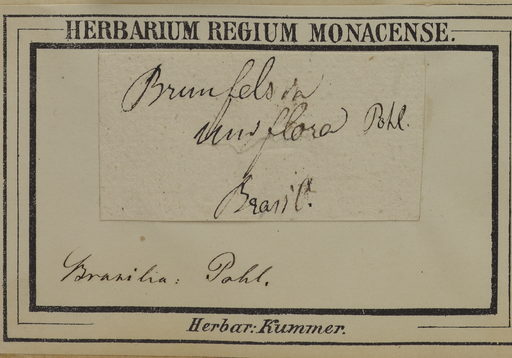 HERBARIUM REGIUM MONACENSE.
Brunfelsia
uniflora Pohl.
Brasil.
Brasilia: Pohl.
Herbar: Kummer.